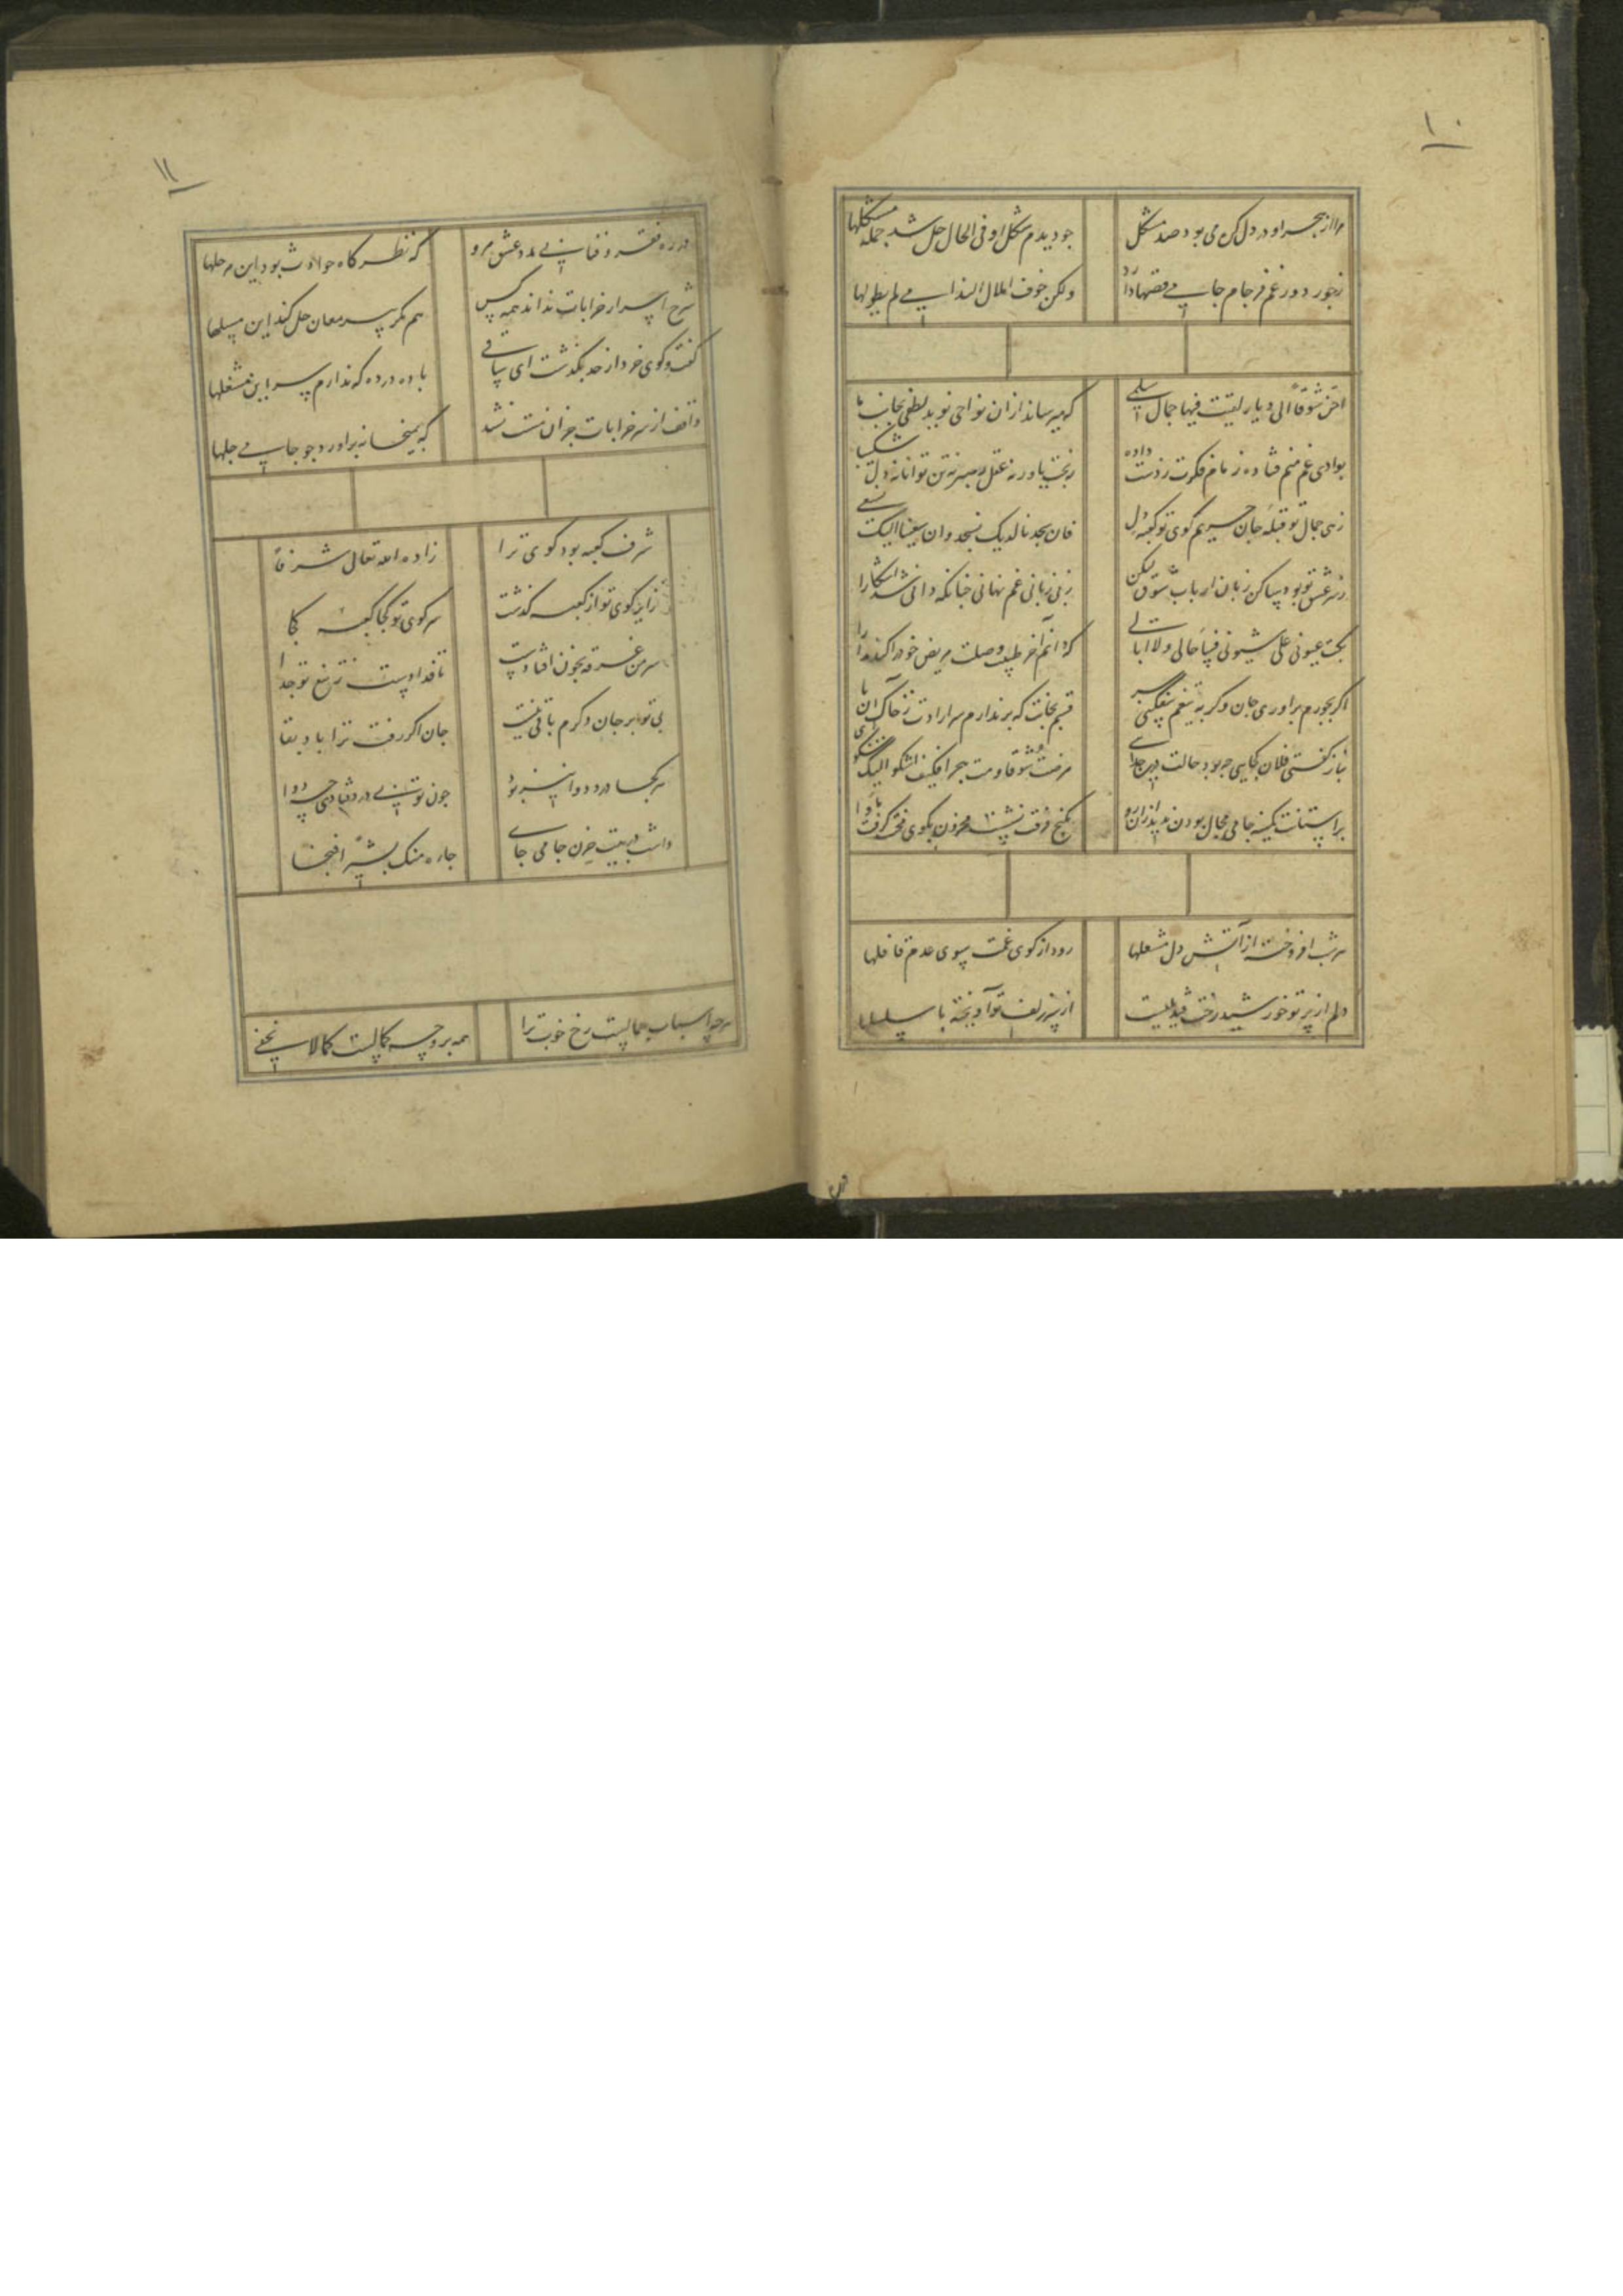 ۱۰
مرا از هجر او در دل کره می بود صد مشکل
جو دیدم شکل او فی الحال حل شد جمله مشکلها
زجور دور غم فرجام جامی قصها دارد
ولکن خوف املال الندامی لم یطولها
احن شوقا الی دیار لقیت فیها جمال سلمی
که میرساند ازان نواحی نوید لطفی بجانب ما
بوادی غم منم فتاده زمام فکرت زدست داده
نه بخت یاور نه عقل رهبر نه تن توانا نه دل شکیبا
زهی جمال تو قبله جان حریم کوی تو کعبه دل
فان سجدنا الیک نسجد وان سعینا الیک نسعی
زسر عشق تو بود ساکن زبان ارباب شوق لیکن
زبی زبانی غم نهانی جنانکه دانی شد آشکارا
بکت عیونی علی شیونی فساء حالی ولا ابالی
که دانم آخر طبیب وصلت مریض خود را کند مداوا
اکر بجورم براوری جان وکر بتیغم بیفکنی سر
قسم بجانت که برندارم سر ارادت زخاک آن پا
بناز کفتی فلان کجایی جه بود حالت درین جدایی
مرضت شوقا ومت هجرا فکیف اشکو الیک شکوی
برآستانت کمینه جامی مجال بودن ندید ازان رو
بکنج فرقت نشست محزون بکوی محنت کرفت ماوا
هر شب افروخته از آتش دل مشعلها
رود از کوی غمت سوی عدم قافلها
دلم از پرتو خورشید رخت قندیلیست
از سر زلف تو آویخته با سلسلها
۱۱
در ره فقر و فنا بی مدد عشق مرو
که نظرکاه حوادث بود این مرحلها
شرح اسرار خرابات نداند همه کس
هم مکر پیر مغان حل کند این مسلها
کفت وکوی خرد از حد بکذشت ای ساقی
باده در ده که ندارم سر این مشغلها
واقف از سر خرابات جز آن مست نشد
که بمیخانه براورد جو جامی جلها
شرف کعبه بود کوی ترا
زاده الله تعالی شرفا
زایر کوی تو از کعبه کذشت
سر کوی تو کجا کعبه کجا
سر من غرقه بخون افتادست
تا فتادست زتیغ تو جدا
بی تو بر جان دکرم باقی نیست
جان اکر رفت ترا باد بقا
هر کجا درد دوا نیز بود
جون تویی درد فتادی جه دوا
داشت در بیت حزن جامی جای
جاءه منک بشیر فنجا
هر چه اسباب جمالست رخ خوب ترا
همه بر وجه کمالست کما لا یخفی